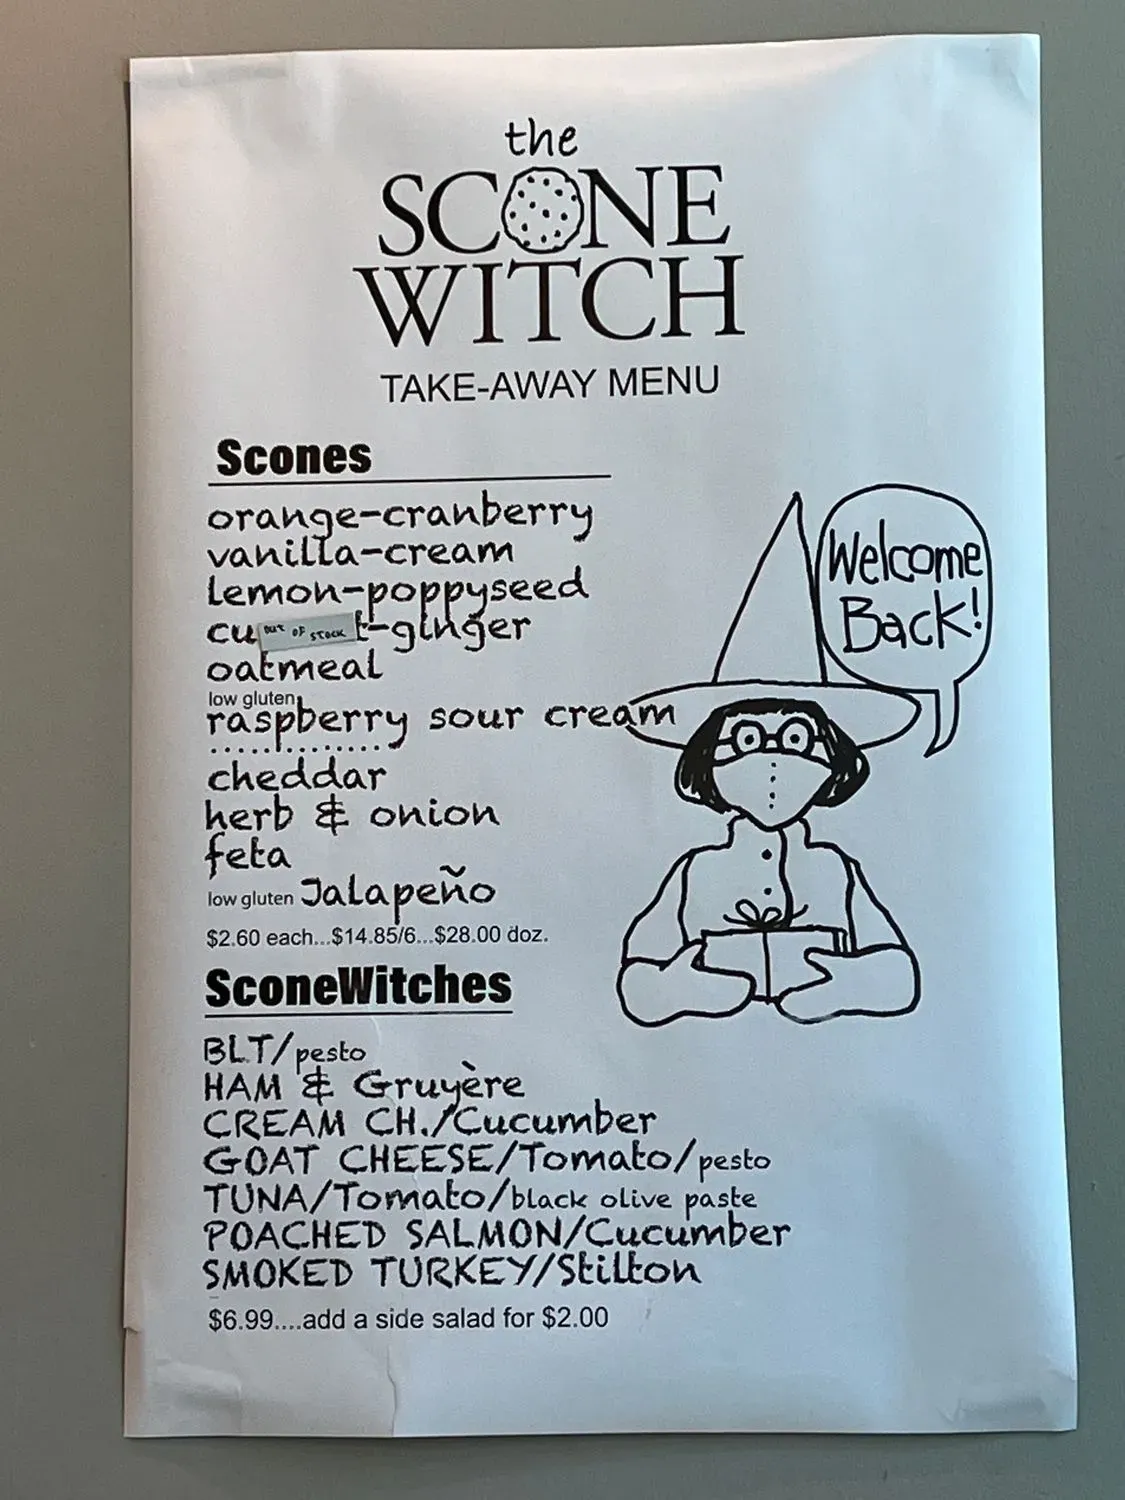 the
SCONE
WITCH
TAKE-AWAY MENU
Scones
orange-cranberry
vanilla-cream
lemon-poppyseed
cu OUT OF STOCK t-ginger
oatmeal
low gluten
raspberry sour cream
cheddar
herb & onion
feta
low gluten Jalapeño
$2.60 each...$14.85/6...$28.00 doz.
Welcome
Back!
SconeWitches
BLT/pesto
HAM & Gruyère
CREAM CH./Cucumber
GOAT CHEESE/Tomato/pesto
TUNA/Tomato/black olive paste
POACHED SALMON/Cucumber
SMOKED TURKEY/Stilton
$6.99....add a side salad for $2.00